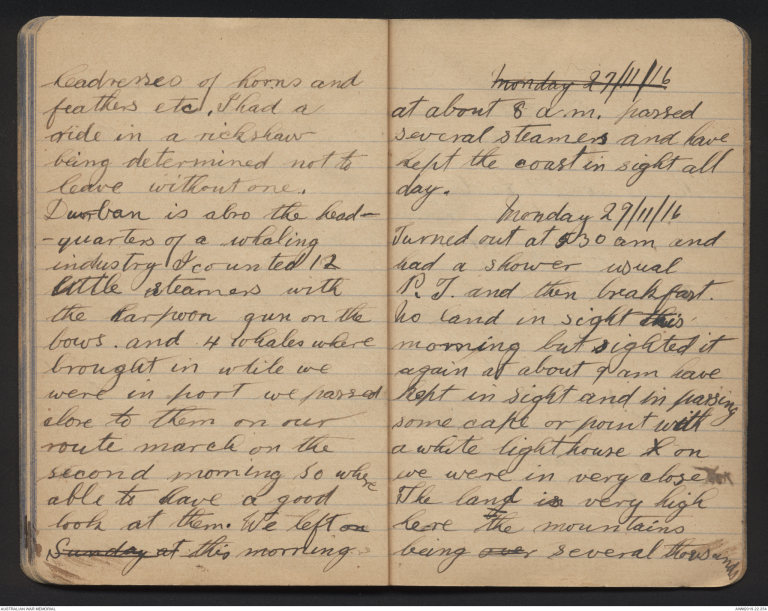 headresses of horns and
feathers etc. I had a
ride in a rickshaw
being determined not to
leave without one.
Durban is also the head-
-quarters of a whaling
industry I counted 12
little steamers with
the harpoon gun on the
bows. and 4 whales where
brought in while we
were in port we passed
close to them on our
route march on the
second morning so where
able to have a good
look at them. We left on
Sunday at this morning
Monday 27/11/16
at about 8 a.m. passed
several steamers and have
kept the coast in sight all
day.
Monday 29/11/16
Turned out at 5 30 am and
had a shower usual
P.T. and then breakfast.
No land in sight this
morning but sighted it
again at about 9 am have
kept in sight and in passing
some cape or point with
a white lighthouse on
we were in very close
The land is very high
here the mountains
being over several thousands
AUSTRALIAN WAR MEMORIAL